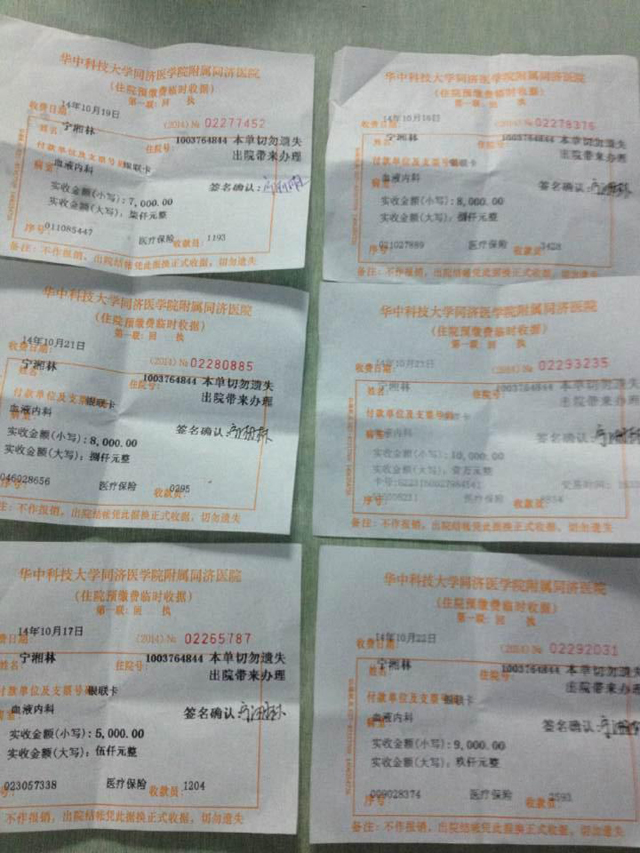 华中科技大学同济医学院附属同济医院
(住院预缴费临时收据)
第一联:回 执
收费日期: 14年10月19日 (2014)№ 02277452
姓名 宁湘林 住院号: 1003764844 本单切勿遗失
付款单位及支票号 银联卡 出院带来办理
病室 血液内科 签名确认:
实收金额(小写):7,000.00
实收金额(大写):柒仟元整
序号 011085447 医疗保险 收款员: 1193
备注: 不作报销, 出院结帐凭此据换正式收据, 切勿遗失
华中科技大学同济医学院附属同济医院
(住院预缴费临时收据)
第一联: 回 执
收费日期: 14年10月18日 (2014)№ 02278376
姓名 宁湘林 住院号: 1003764844 本单切勿遗失
付款单位及支票号 银联卡 出院带来办理
病室 血液内科 签名确认:
实收金额(小写):8,000.00
实收金额(大写):捌仟元整
序号 021027889 医疗保险 收款员: 3428
备注: 不作报销, 出院结帐凭此据换正式收据, 切勿遗失
华中科技大学同济医学院附属同济医院
(住院预缴费临时收据)
第一联: 回 执
收费日期: 14年10月21日 (2014)№ 02280885
姓名 宁湘林 住院号: 1003764844 本单切勿遗失
付款单位及支票号 银联卡 出院带来办理
病室 血液内科 签名确认:
实收金额(小写):8,000.00
实收金额(大写):捌仟元整
046028656 医疗保险 收款员: 0295
备注: 不作报销, 出院结帐凭此据换正式收据, 切勿遗失
华中科技大学同济医学院附属同济医院
(住院预缴费临时收据)
第一联: 回 执
收费日期: (2014)№ 02293235
姓名 宁湘林 住院号: 1003764844 本单切勿遗失
付款单位及支票号 银联卡 出院带来办理
病室 血液内科 签名确认:
实收金额(小写):10,000.00
实收金额(大写):壹万元整
卡号: 交易时间:
序号 医疗保险 收款员:
备注: 不作报销, 出院结帐凭此据换正式收据, 切勿遗失
华中科技大学同济医学院附属同济医院
(住院预缴费临时收据)
第一联: 回 执
收费日期: 14年10月17日 (2014)№ 02265787
姓名 宁湘林 住院号: 1003764844 本单切勿遗失
付款单位及支票号 银联卡 出院带来办理
血液内科 签名确认:
实收金额(小写):5,000.00
实收金额(大写):伍仟元整
023057338 医疗保险 收款员: 1204
不作报销, 出院结帐凭此据换正式收据, 切勿遗失
华中科技大学同济医学院附属同济医院
(住院预缴费临时收据)
第一联: 回 执
收费日期: 14年10月22日 (2014)№ 02292031
姓名 宁湘林 住院号: 1003764844 本单切勿遗失
付款单位及支票号 银联卡 出院带来办理
病室 血液内科 签名确认:
实收金额(小写):9,000.00
实收金额(大写):玖仟元整
序号 009028374 医疗保险 收款员: 2593
备注: 不作报销, 出院结帐凭此据换正式收据, 切勿遗失